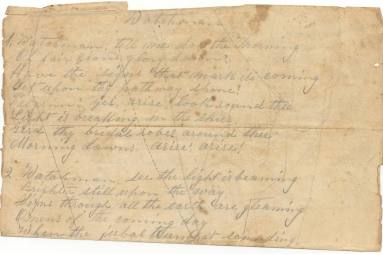 Watchman
1. Watchman, tell me does the morning
Of fair Zion's glory dawn?
Have the signs that mark its coming
Yet upon thy pathway shone?
Pilgrim! yes, arise look round thee
Light is breaking in the skies
Gird thy bridal robes around thee
Morning dawns. arise! arise!
2. Watchman see the light is beaming
Brighter still upon the way
Signs through all the earth are gleaming
Omens of the coming day
When the jubal trumpet sounding